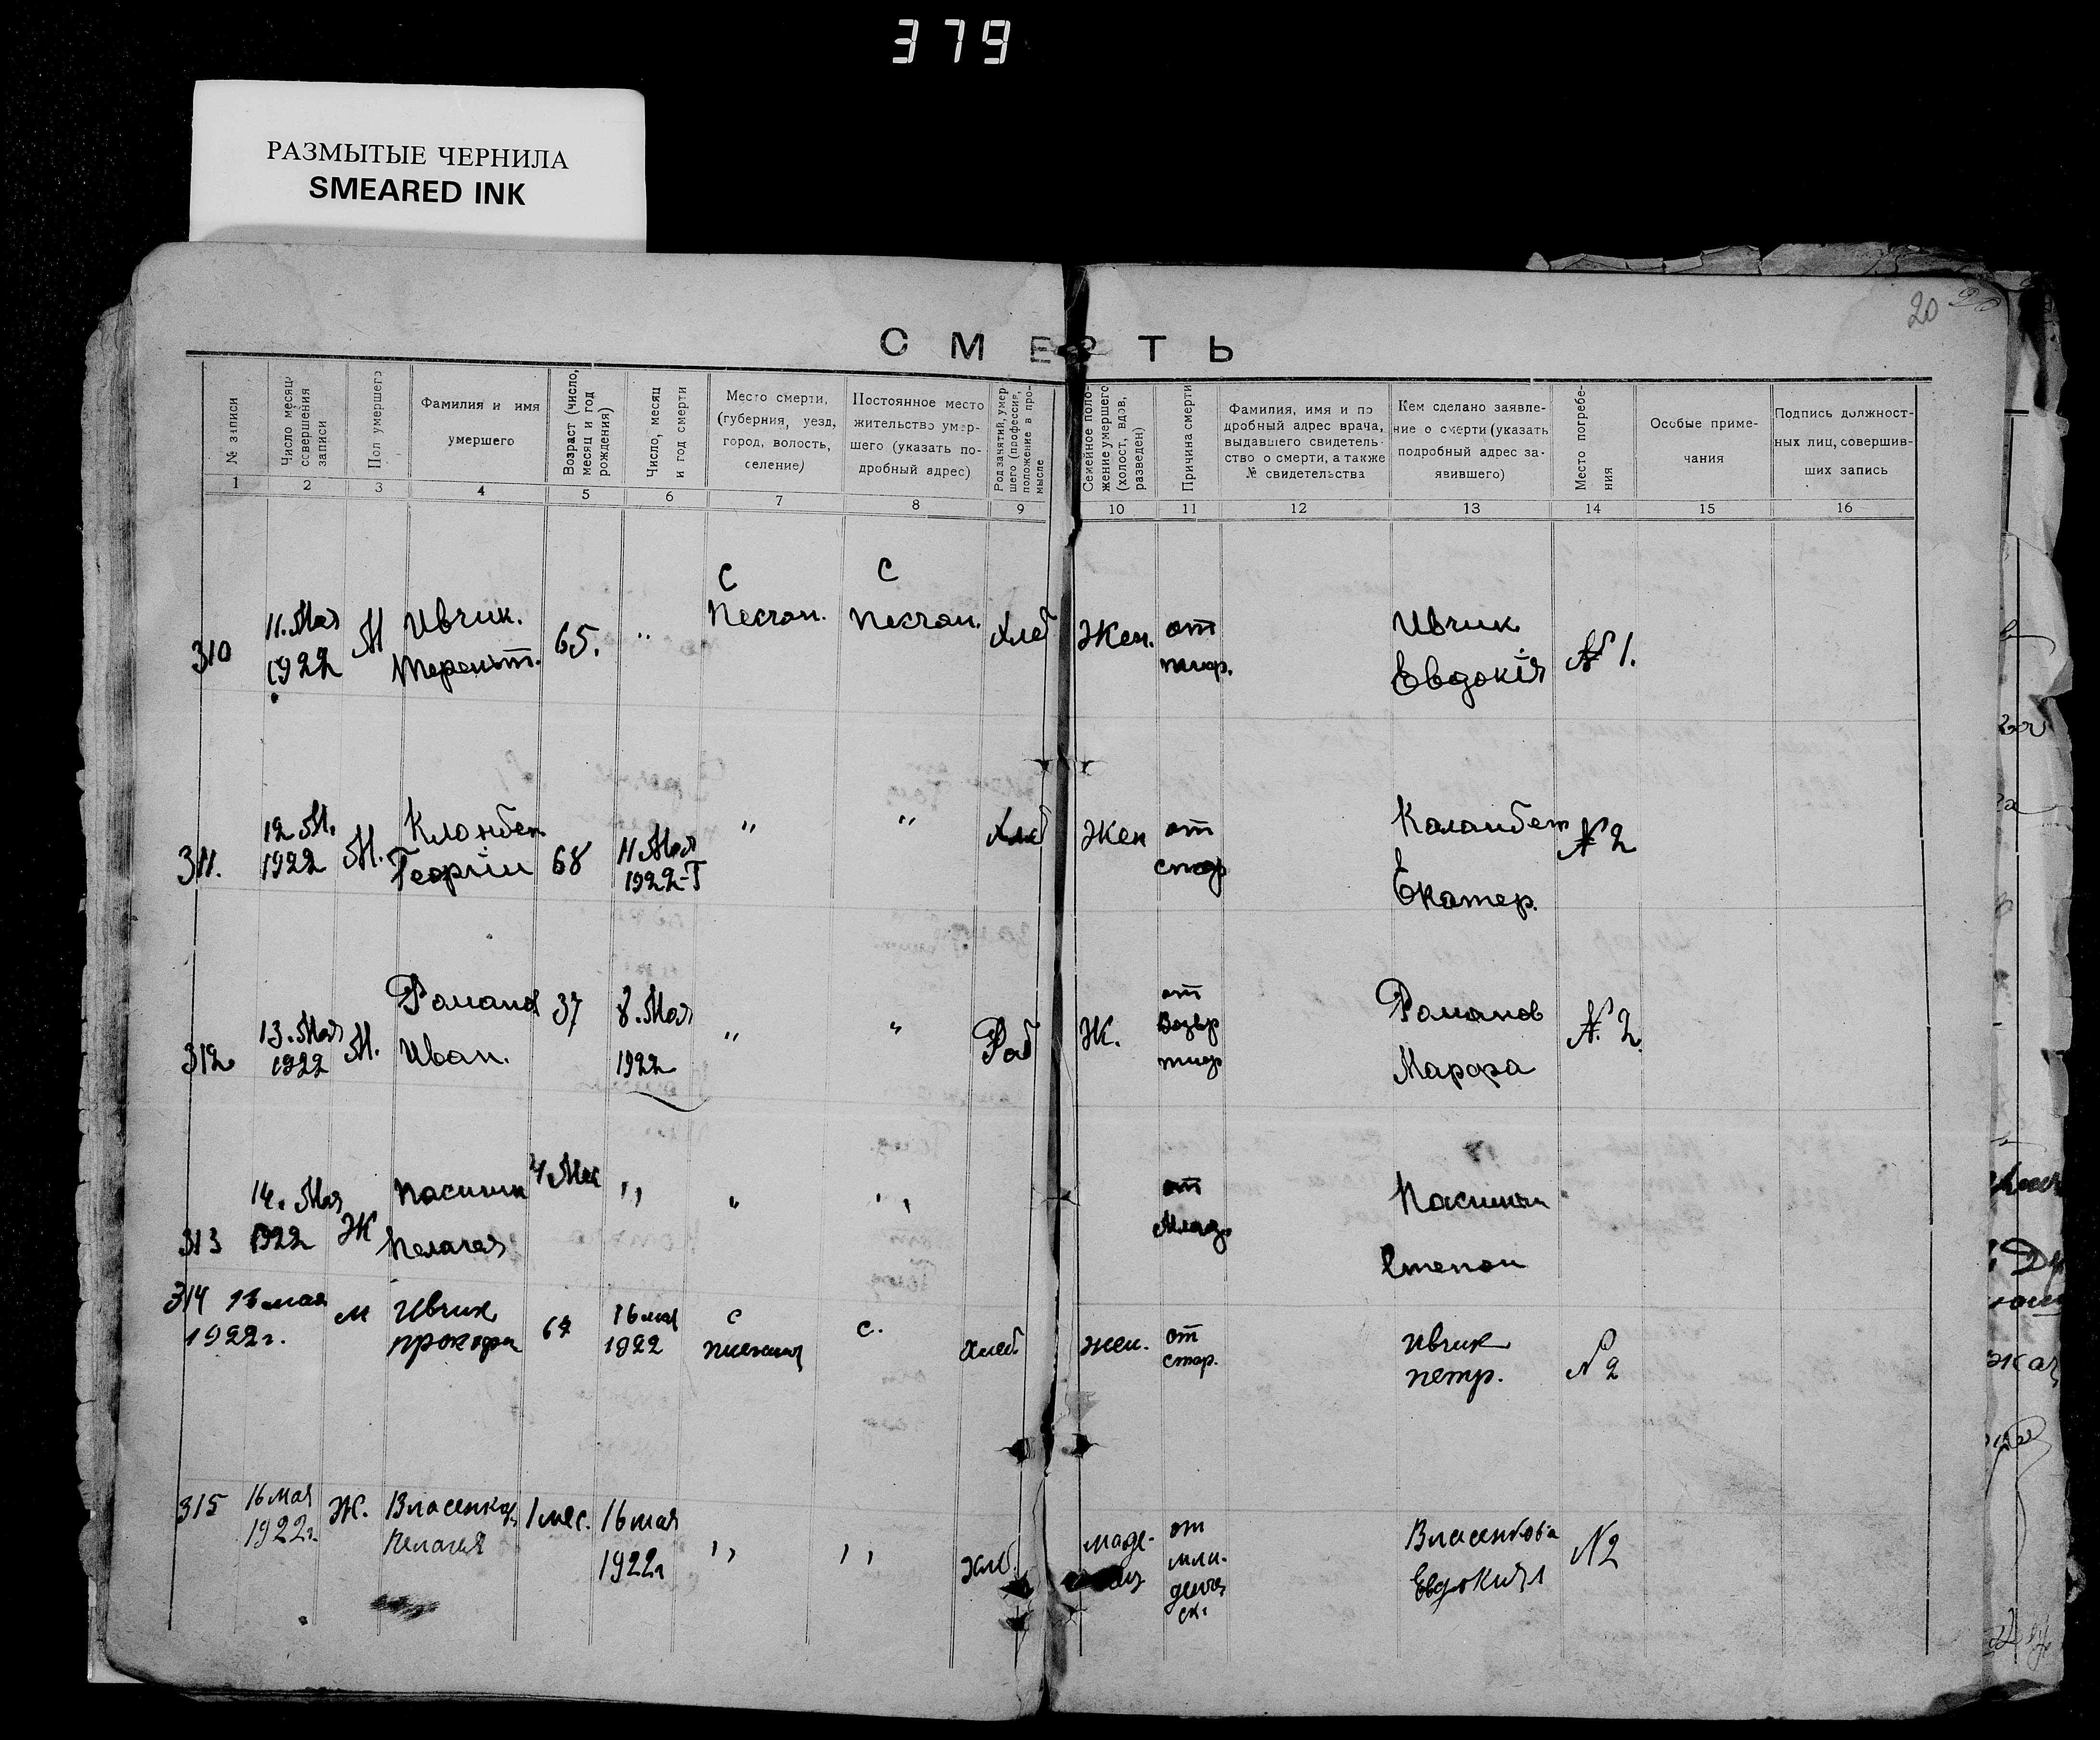 379
РАЗМЫТЫЕ ЧЕРНИЛА
SMEARED INK
20 20
СМЕРТЬ
№ записи
Число месяц совершения записи
Пол умершего
Фамилия и имя
умершего
Возраст (число, месяц и год рождения)
Число, месяц и год смерти
Место смерти,
(губерния, уезд,
город, волость,
селение)
Постоянное место
жительство умер-
шего (указать по-
дробный адрес)
Род занятий, умер
шего (профессия,
положение в про-
мысле
Семейное поло-
жение умершего
(холост, вдов,
разведен)
Причина смерти
Фамилия, имя и по
дробный адрес врача,
выдавшего свидетель-
ство о смерти, а также
№ свидетельства
Кем сделано заявле-
ние о смерти (указать
подробный адрес за-
явившего)
Место погребе-
ния
Особые приме-
чания
Подпись должност-
ных лиц, совершив-
ших запись
1 2 3 4 5 6 7 8 9 10 11 12 13 14 15 16
310
11. Мая
1922
М
Ивчик.
Терент.
65.
"
с
Песчан.
с
Песчан.
Хлеб
Жен.
от
тиф.
Ивчик
Евдокія
№ 1.
311.
12 М.
1922
М.
Клонбет
Георгии
68
11 Мая
1922-Г
"
"
Хлеб
Жен
от
Каланбет
Екатер.
№ 2
312
13. Мая
1922
М.
Романов
Иван.
37
8. Мая
1922
"
"
Раб
Ж.
от
Возвр
тиф
Романов
Марфа
№. 2.
313
14. Мая
1922
Ж
Пелагея
4 Мес
"
"
"
от
Млад.
Степан
314
мая
1922г.
М
Ивчик
прокофи
16 мая
1922
с
с.
хлеб.
жен.
от
стар.
Ивчик
петр.
№ 2
315
16 мая
1922г.
Ж.
Власенков
Пелагея
1 мес.
16 мая
1922г
"
"
хлб.
от
мла-
денч
ск.
Власенкова
Евдокия
№ 2